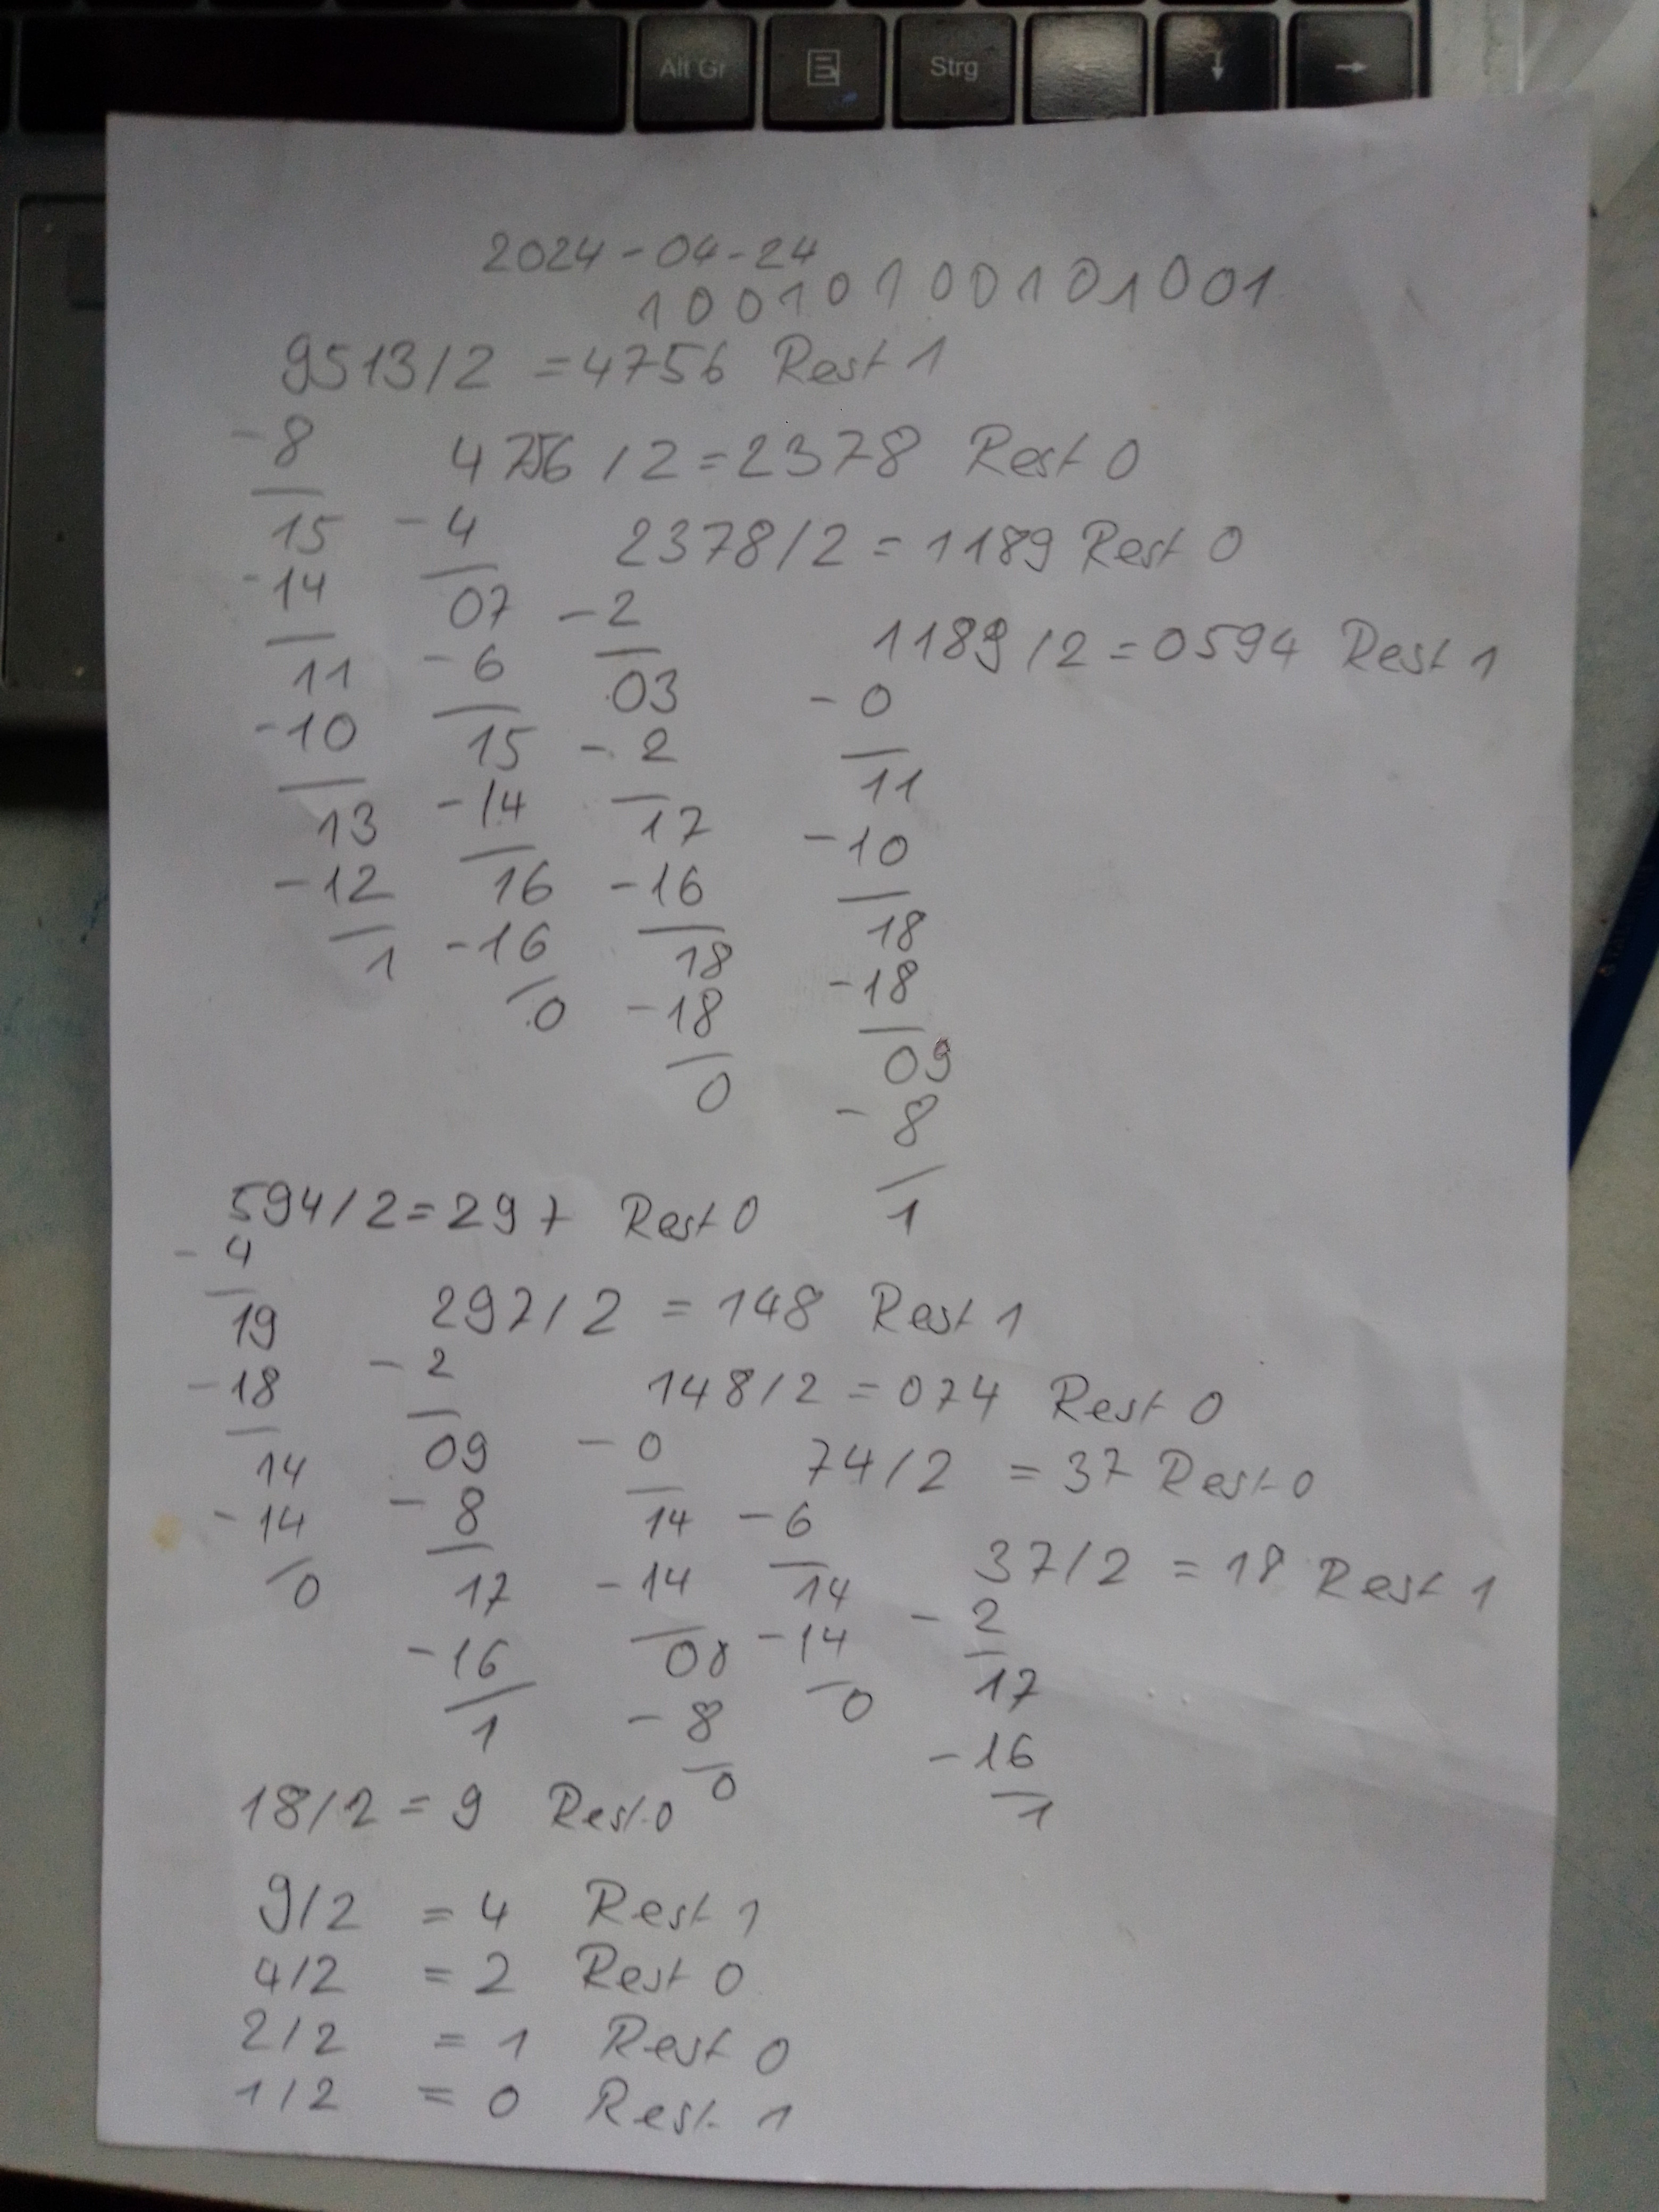 Alt Gr Strg ← ↓ →
2024-04-24
10010100101001
9513/2 =4756 Rest 1
-8 4756/2=2378 Rest 0
15 -4 2378/2=1189 Rest 0
-14 07 -2 1189/2=0594 Rest 1
11 -6 03 -0
-10 15 -2 11
13 -14 17 -10
-12 16 -16 18
1 -16 18 -18
0 -18 09
0 -8
594/2=297 Rest 0 1
-4
19 297/2 =148 Rest 1
-18 -2 148/2=074 Rest 0
14 09 -0 74/2 =37 Rest 0
-14 -8 14 -6 37/2 =18 Rest 1
0 17 -14 14 -2
-16 08 -14 17
1 -8 0 -16
18/2=9 Rest 0 0 1
9/2 =4 Rest 1
4/2 =2 Rest 0
2/2 =1 Rest 0
1/2 =0 Rest 1